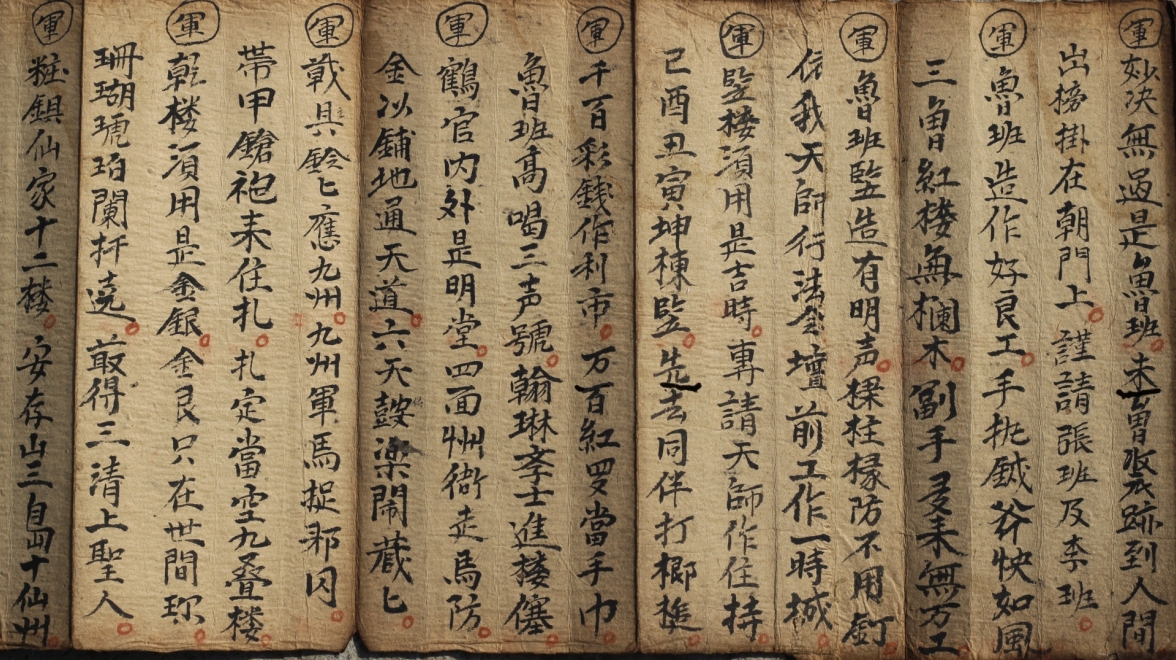 軍妙决無過是魯班未曾收跡到人間
出榜掛在朝門上謹請張班及李班
軍魯班造作好良工手㧣鉞斧快如風
三魯紅楼無欄木副手叐耒無万工
軍魯班監造有明声樑柱椽防不用釘
依我天師行法令壇前工作一時城
軍監楼湏用是吉時専請天師作住持
己酉丑寅坤棟监先去同伴打榔槌
軍千百彩銭作利市万百紅罗當手巾
魯班高喝三声號翰琳斈士進楼僿
軍鶴官内外是明堂四面州衙走馬防
金以鋪地通天道六天鼓楽鬧蔵匕
軍戦具鈴匕應九州九州軍馬捉邪囚
帯甲鎗袍耒住扎扎定當空九叠楼
軍乾楼湏用是金銀金艮只在世間珎
珊瑚琥珀闌杆遶敢得三清上聖人
軍粧鎮仙家十二楼安存山三島十仙州